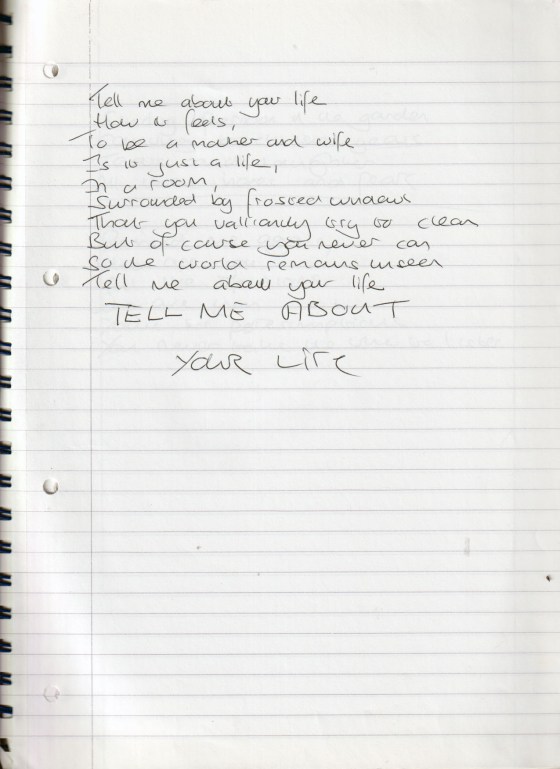 Tell me about your life
How it feels,
To be a mother and wife
Is it just a life,
In a room,
Surrounded by frosted windows
That you valliantly try to clean
But of course you never can
So the world remains unseen
Tell me about your life
TELL ME ABOUT
YOUR LIFE